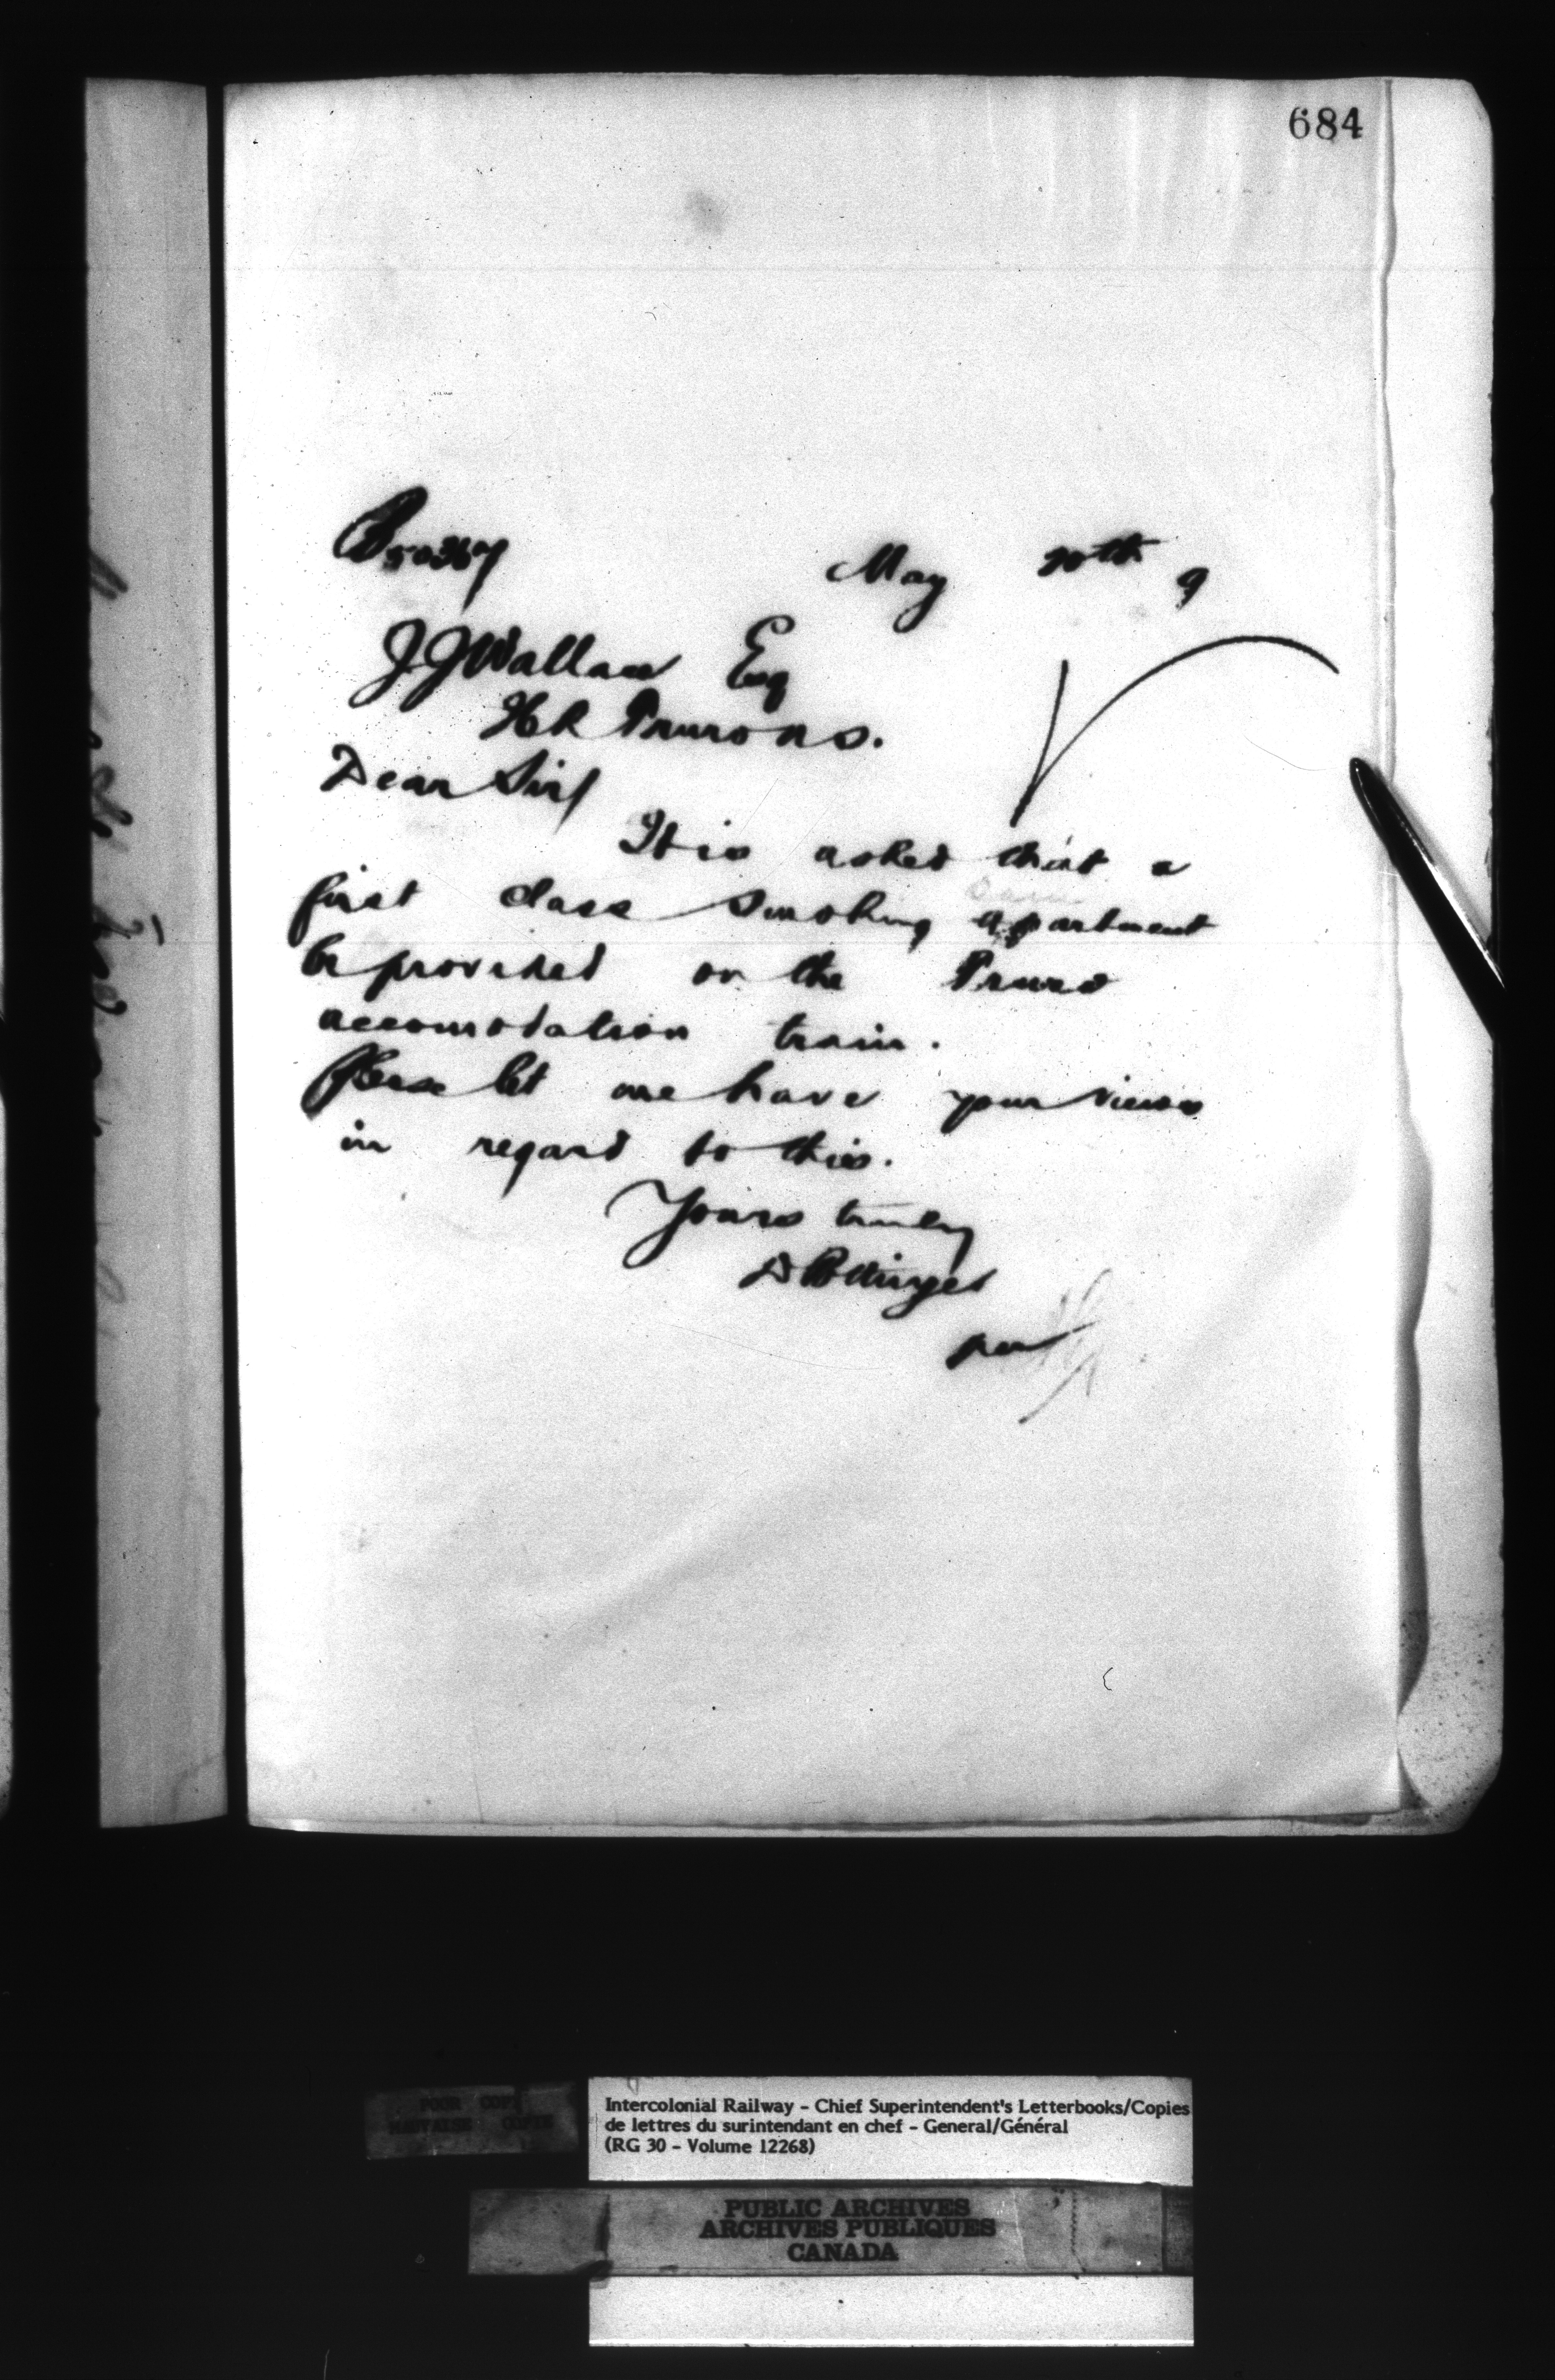 684
50367 May 20th 9
J J Wallace Esq
Truro N.S.
Dear Sir/
It is asked that a
first class smoking apartment
be provided on the Truro
accomodation train.
Please let me have your views
in regard to this.
Yours truly
D Pottinger
per
POOR COPY
MAUVAISE COPIE
Intercolonial Railway - Chief Superintendent's Letterbooks/Copies
de lettres du surintendant en chef - General/Général
(RG 30 - Volume 12268)
PUBLIC ARCHIVES
ARCHIVES PUBLIQUES
CANADA